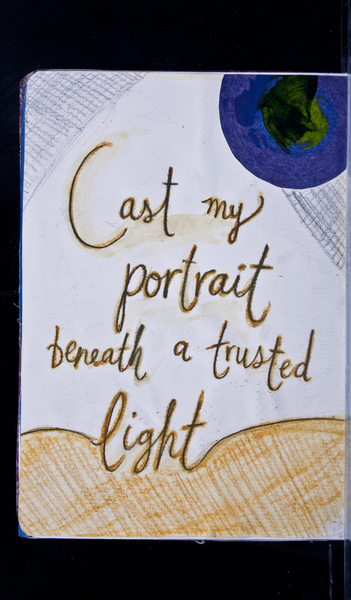 Cast my
portrait
beneath a trusted
light